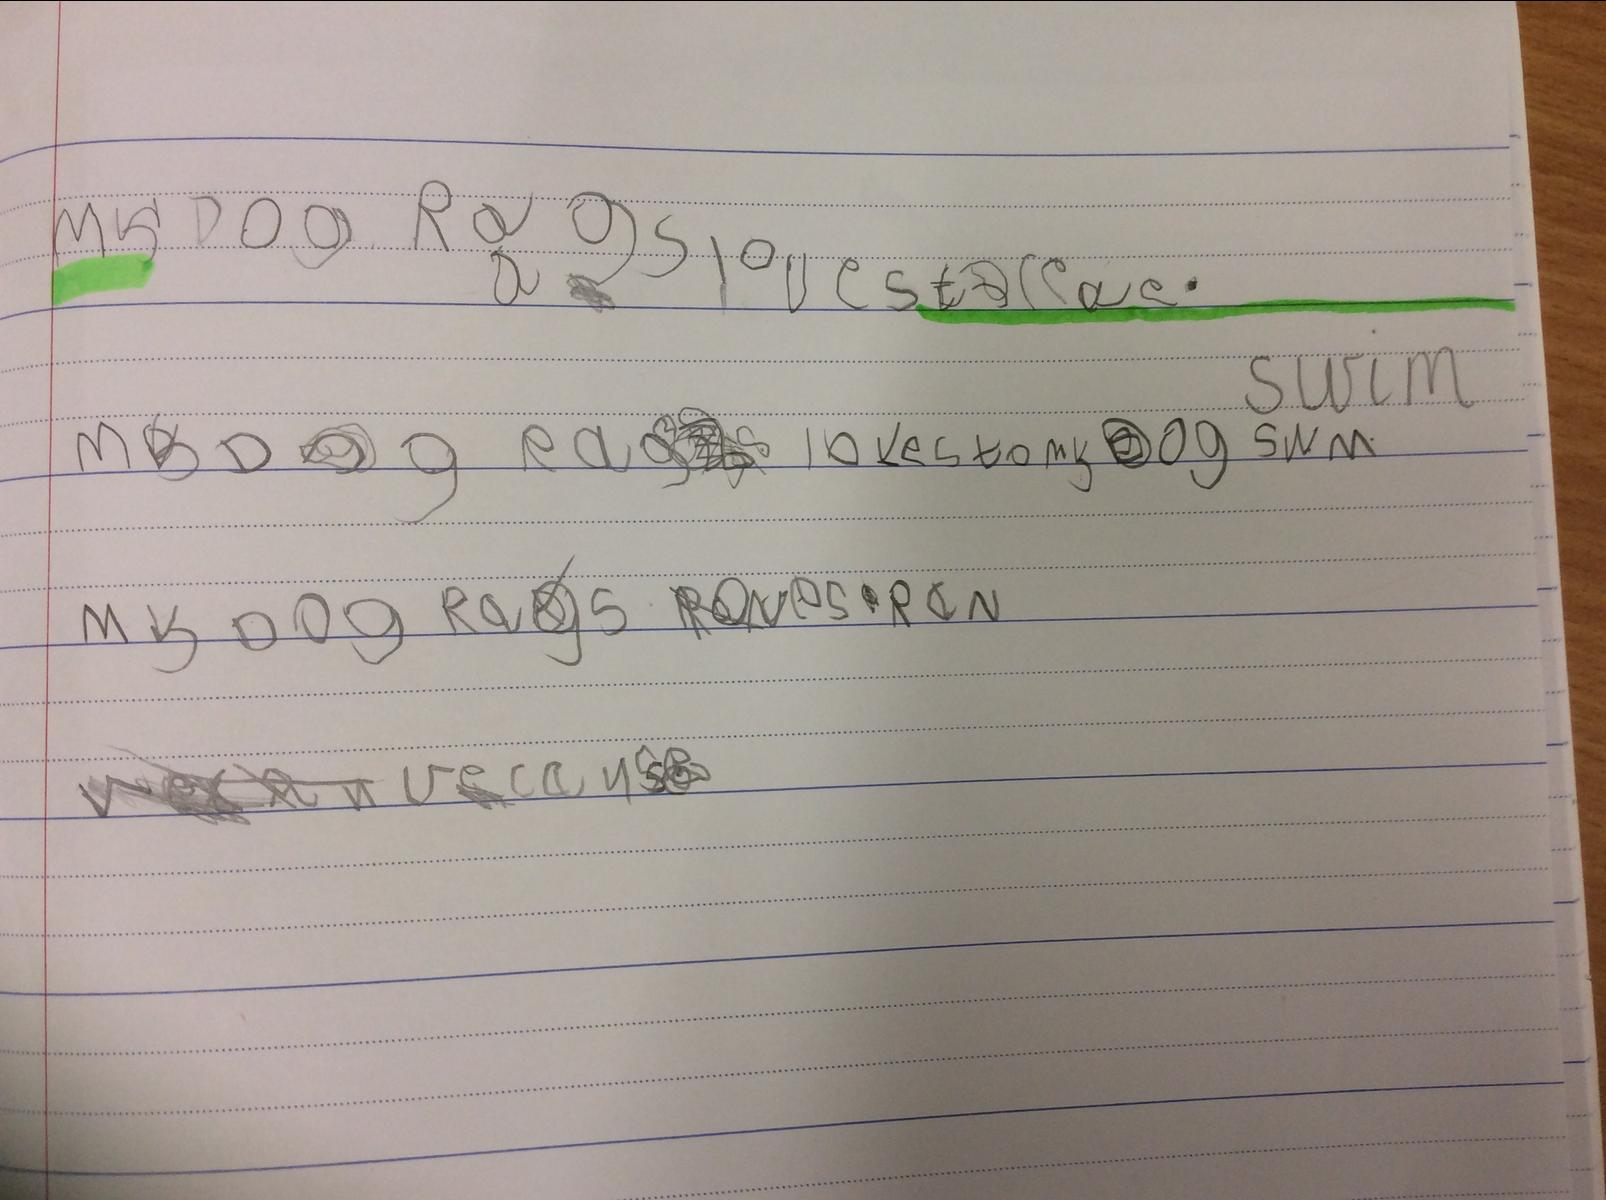 My Dog Rags loves
a
swim
My Dog Rags lovestomy Dog swm
My DOg Rags RAN
vecause